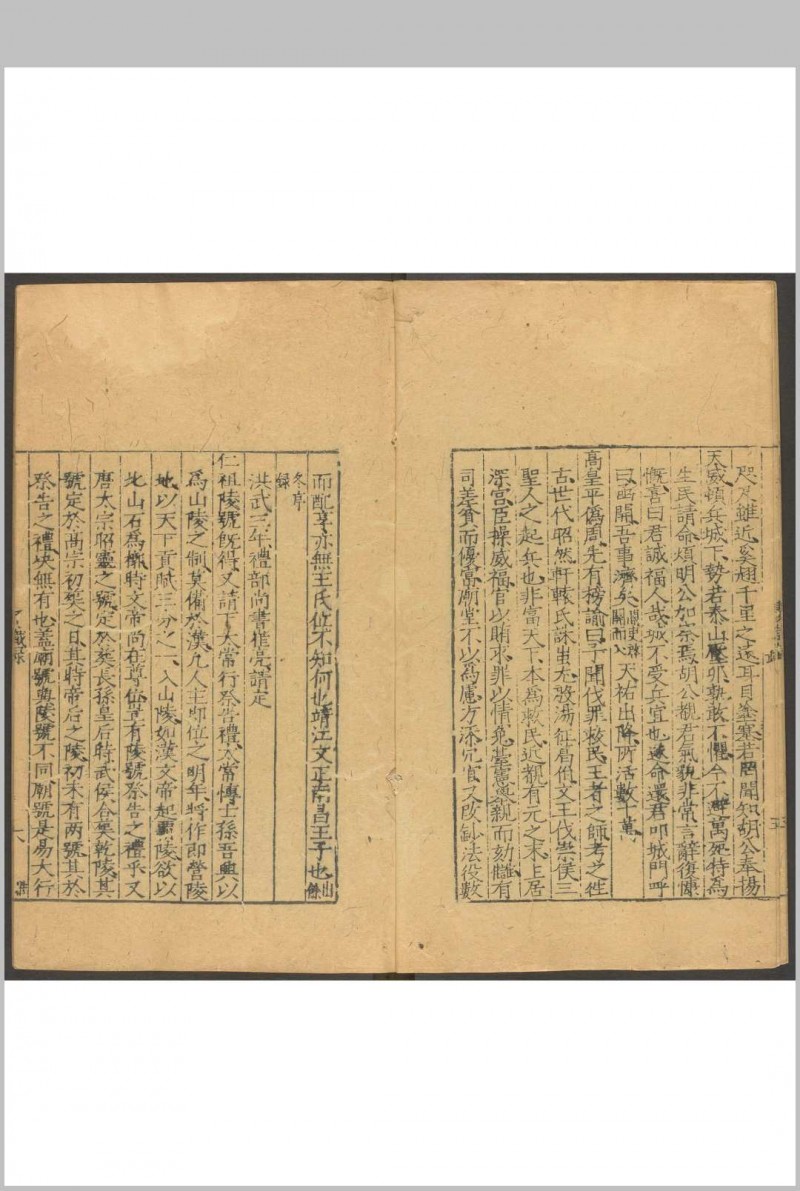 咫尺雖近奚趐千里之遠耳目蓥塞若罔聞知胡公奉揚
天威頓兵城下勢若泰山壓卵孰敢不懼今不避萬死特爲
生民請命煩明公加察焉胡公覩君氣貌非常言辭復慷
慨喜曰君誠福人哉城不受兵宜也遂命還君叩城門呼
曰函開吾事濟矣 天祐出降所活數十萬
高皇平僞周先有榜諭曰予聞伐罪救民王者之師考之徃
古世代昭然軒轅氏誅蚩尤殷湯征葛伯文王伐崇侯三
聖人之起兵也非富天下本爲救民近覩有元之末上居
深宫臣操威福官以賄求罪以情免臺憲舉親而劾讎有
司差貧而優富廟堂不以爲慮方添冗官又改鈔法役數
而配享亦無王氏位不知何也靖江文正南昌王子也
冬亭
録
洪武三年禮部尚書崔亮請定
仁祖陵號既得又請下太常行祭告禮太常博士孫吾與以
爲山陵之制莫備於漢凢人主即位之明年將作即營陵
地以天下貢賦三分之一入山陵如漢文帝起霸陵欲以
北山石爲槨時文帝尚在尊位豈有陵號祭告之禮乎又
唐太宗昭靈之號定於葬長孫皇后時武侯合葬乾陵其
號定於高宗初葬之日其時帝后之陵初未有两號其於
祭告之禮决無有也蓋廟號與陵號不同廟號是易大行